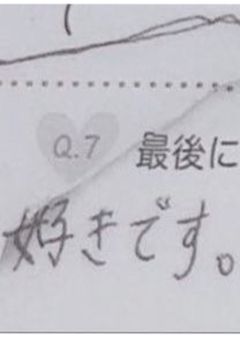 Q.7 最後に
好きです。